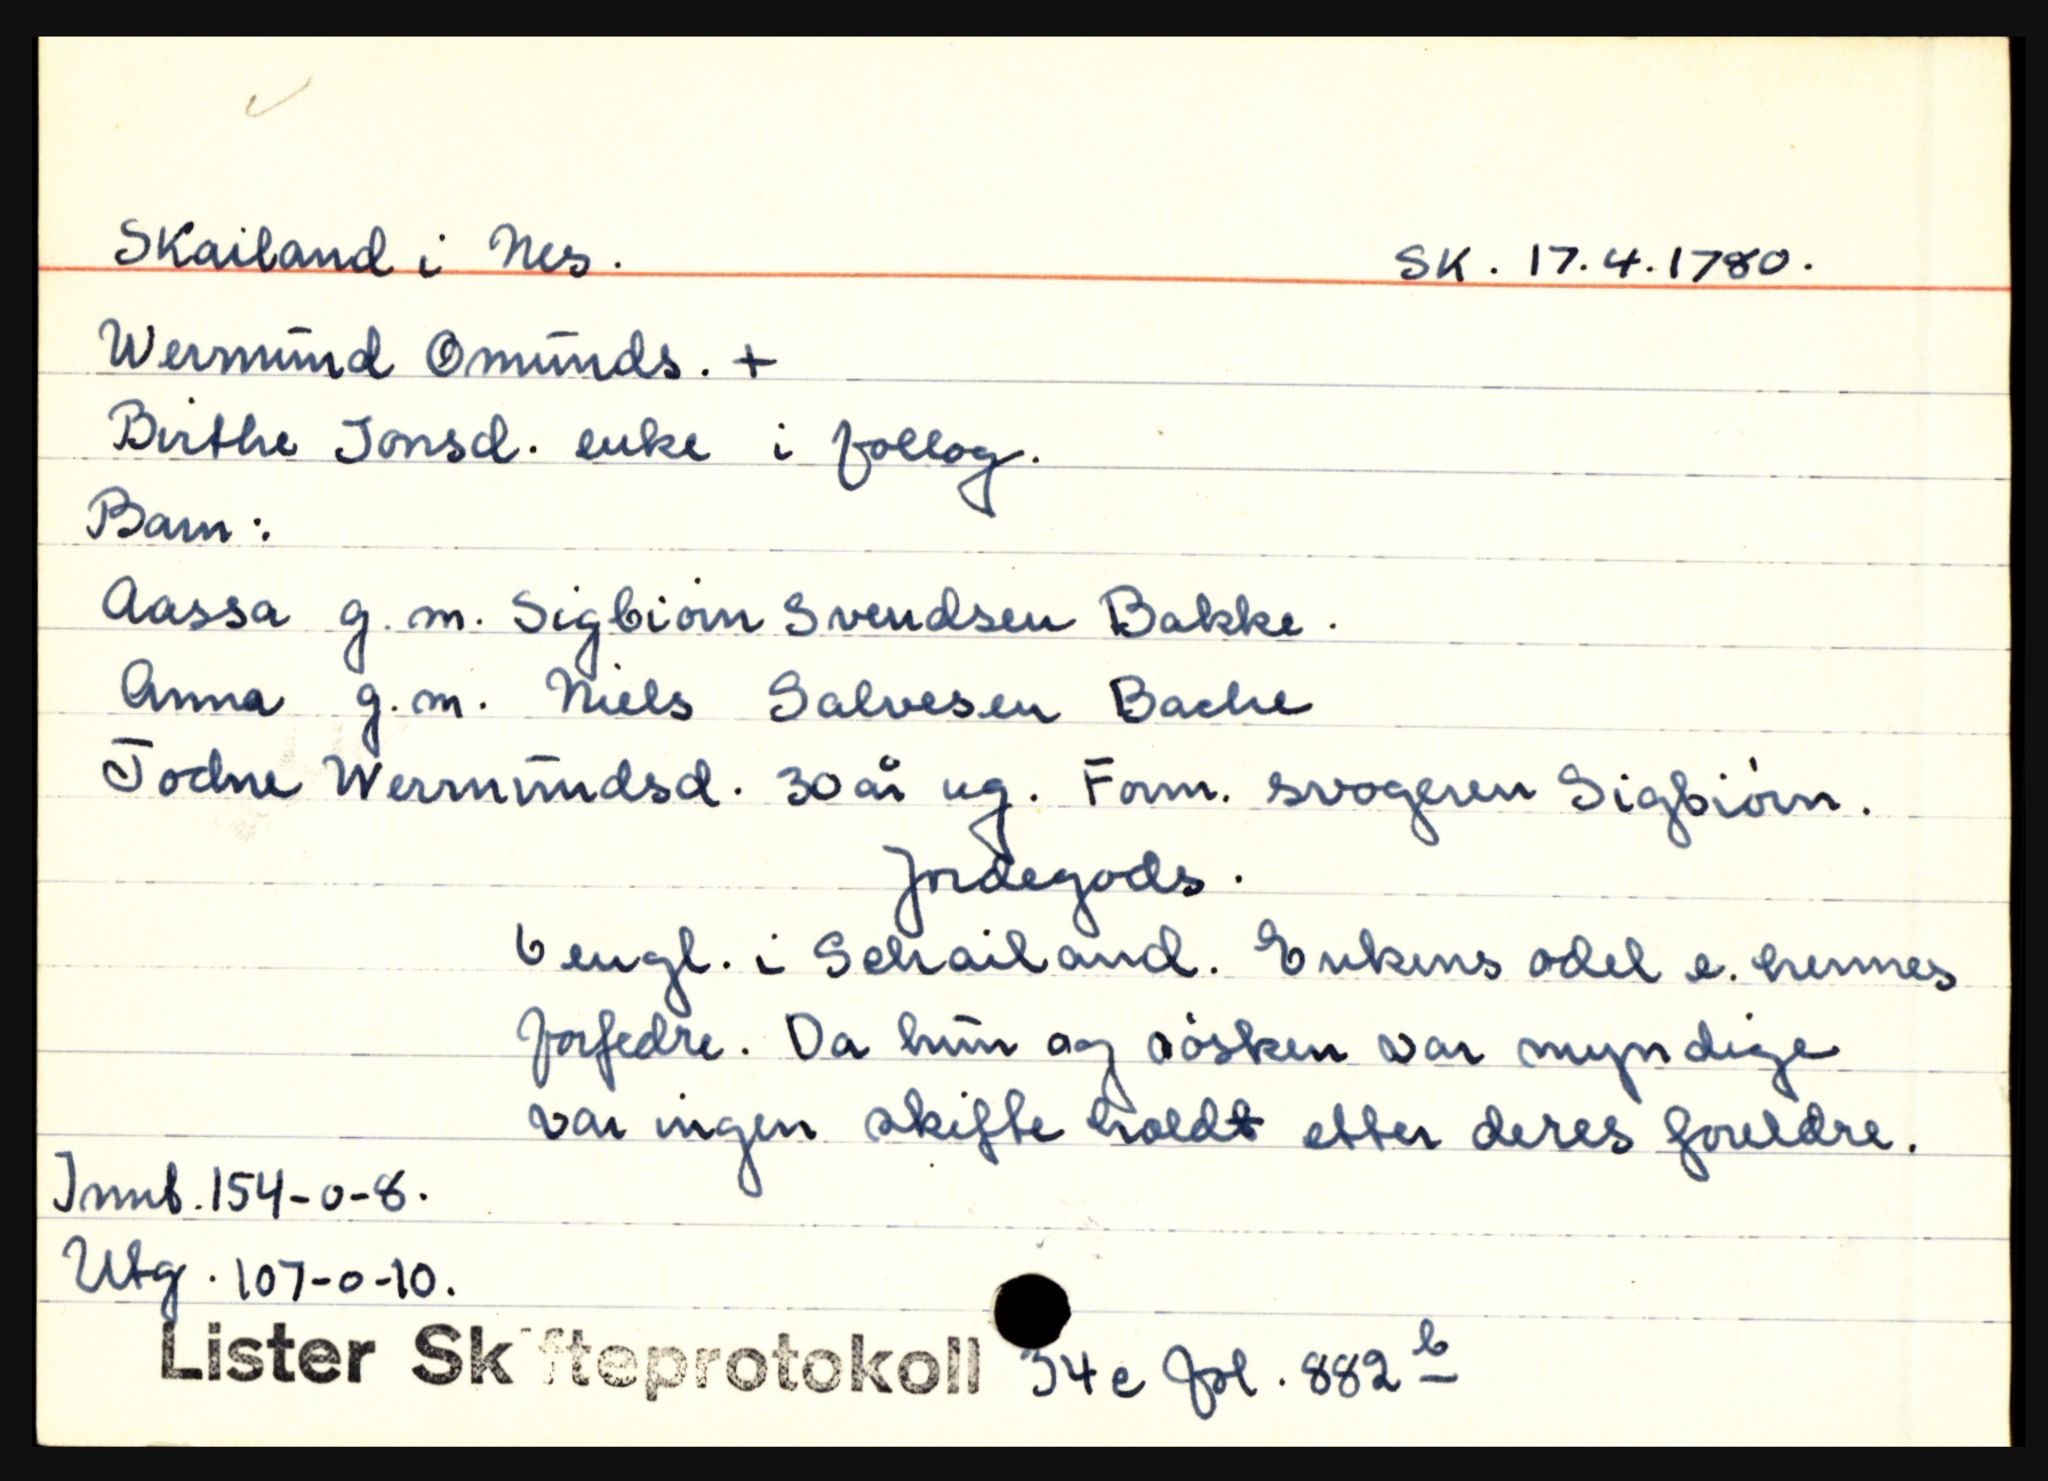 Skailand i Nes. SK. 17.4.1780.
Wermund Omunds. +
Birthe Jonsd. enke i follog.
Barn:
Aassa g.m. Sigbiorn Svendsen Bakke.
Anna g.m. Niels Salvesen Bache
Todne Wermundsd. 30 år ug. Form. svogeren Sigbiórn.
Jordegods.
6 engl. i Schailand. Enkens odel e. hennes
forfedre. Da hun og sósken var myndige
var ingen skifte holdt etter deres foreldre.
Innb. 154-0-8.
Utg. 107-0-10.
Lister Skifteprotokoll 34c fol. 882 b